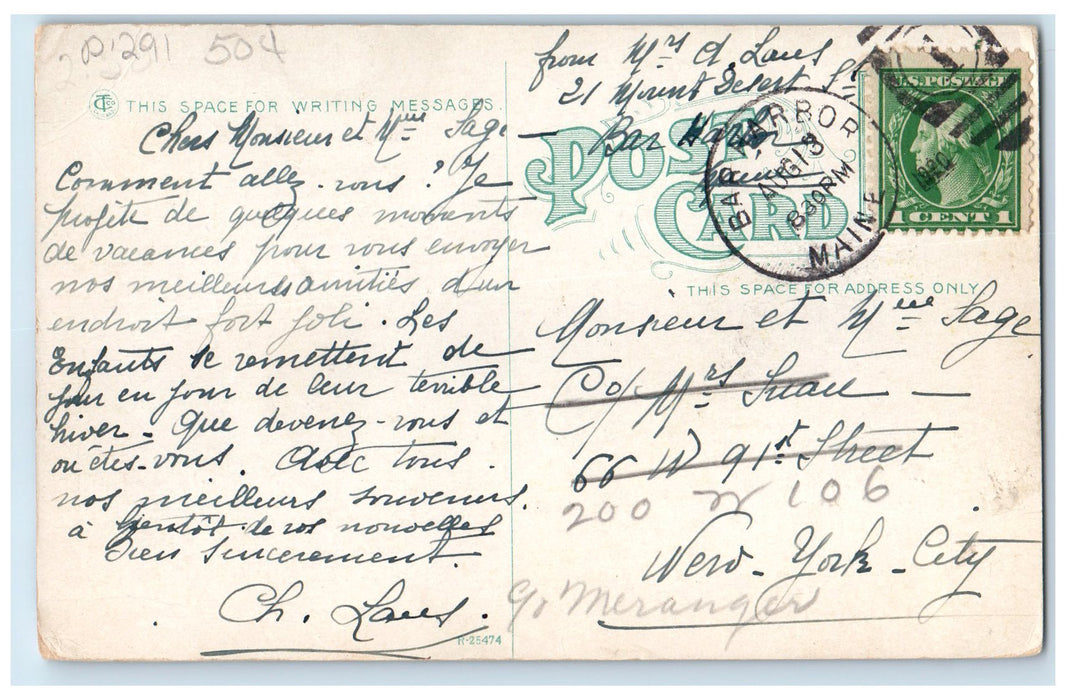 504
THIS SPACE FOR WRITING MESSAGES.
Chers Monsieur et Mme Sage
Comment allez-vous ? Je
profite de quelques moments
de vacances pour vous envoyer
nos meilleures amitiés d'un
endroit fort joli. Les
Enfants se remettent de
jour en jour de leur terrible
hiver. Que devenez-vous et
où êtes-vous. Avec tous
nos meilleurs souvenirs.
à bientôt de vos nouvelles
Bien sincerement.
Ch. Laus.
R-25474
from Mrs Ch Laus
21 Mount Desert St
Bar Harbor
Maine
POST CARD
BAR HARBOR
AUG 13
830PM
MAINE
1
U.S. POSTAGE
1 CENT 1
THIS SPACE FOR ADDRESS ONLY
Monsieur et Mme Sage
C/o Mrs
66 W 91st Street
200 W 106
New-York-City
c/o Meranger